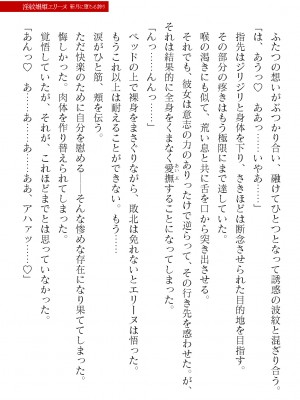 エリーヌ
つの想いがぶつかり合い、融けてひとつとなって誘惑の波紋と混ざり合う。
「は、あうっ♡ あああっ……いやあ……」
指先はジリジリと身体を下り、さきほどは断念させられた目的地を目指す。
その部分の疼きはもう極限にまで達していた。
喉の渇きにも似て、荒い息と共に舌を口から突き出させる。
それでも、彼女は意志の力のありったけで逆らって、その行き先を惑わせた。が、
それは結果的に全身をくまなく愛撫することになってしまった。
「んっ……んんっ……」
ベッドの上で裸身をまさぐりながら、敗北は免れないとエリーヌは悟った。
もうこれ以上は耐えることができない。もう……
涙がひと筋、頬を伝う。
ただ快楽のために自分を慰める――そんな惨めな存在になり果ててしまった。
悔しかった。肉体を作り替えられてしまった。
覚悟していたが、それが、これほどまでとは思っていなかった。
「あんっ♡ あっ……あ、ああ、ああ、アハァッ……♡」